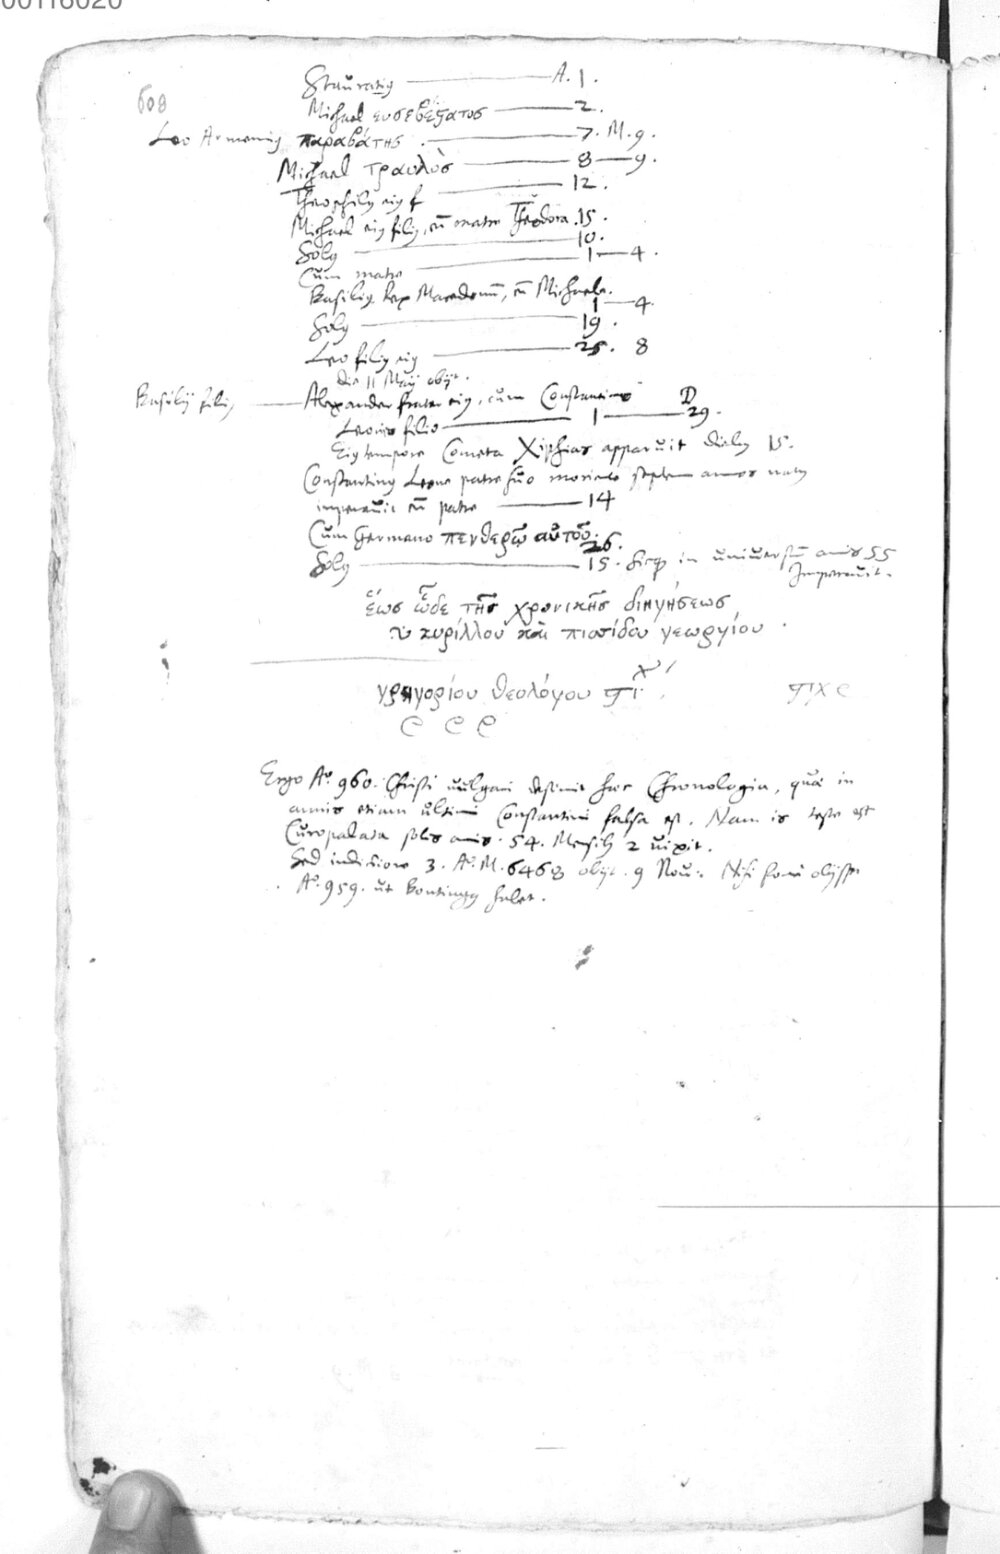 00116020
608
Stauratiꝰ A. 1.
Michael ευσεβέςατος 2.
Leo Armeniꝰ παραβάτης 7. M. 9.
Michael τραυλὸς 8 9.
Theophilꝰ eiꝰ f 12.
Michael eiꝰ filiꝰ, cū matre Theodora 15.
Solꝰ 10.
Cum matre 1 4.
Basiliꝰ Rex Macedonū, cū Michaele.
1 4.
Solꝰ 19.
Leo filiꝰ eiꝰ 25. 8
die 11 Maij obijt.
Basilij filiꝰ Alexander frater eiꝰ, cum Constantino D
Leonis filio 1 29.
Eiꝰ tempore Cometa Xiphias apparuit diebꝰ 15.
Constantinꝰ Leone patre suo moriente septem annos natꝰ
imperauit cū patre 14
Cum Germano πενθερῶ αὐτοῦ. 26.
Solꝰ 15. Sicq in uniuersū annis 55
Imperauit.
ἕως ὧδε τῆς χρονικῆς διηγήσεως
κυρίλλου καὶ πισίδου γεωργίου.
γρηγορίου θεολόγου
Ergo Aº. 960. Christi uulgari desinit haec Chronologia, quae in
annis etiam ultimi Constantini falsa est. Nam is teste
Curopalata solis annis 54. Mensibꝰ 2 uixit.
Sed indictione 3. Aº. M. 6468 obijt. 9 Nou.
Aº. 959. ut habet.